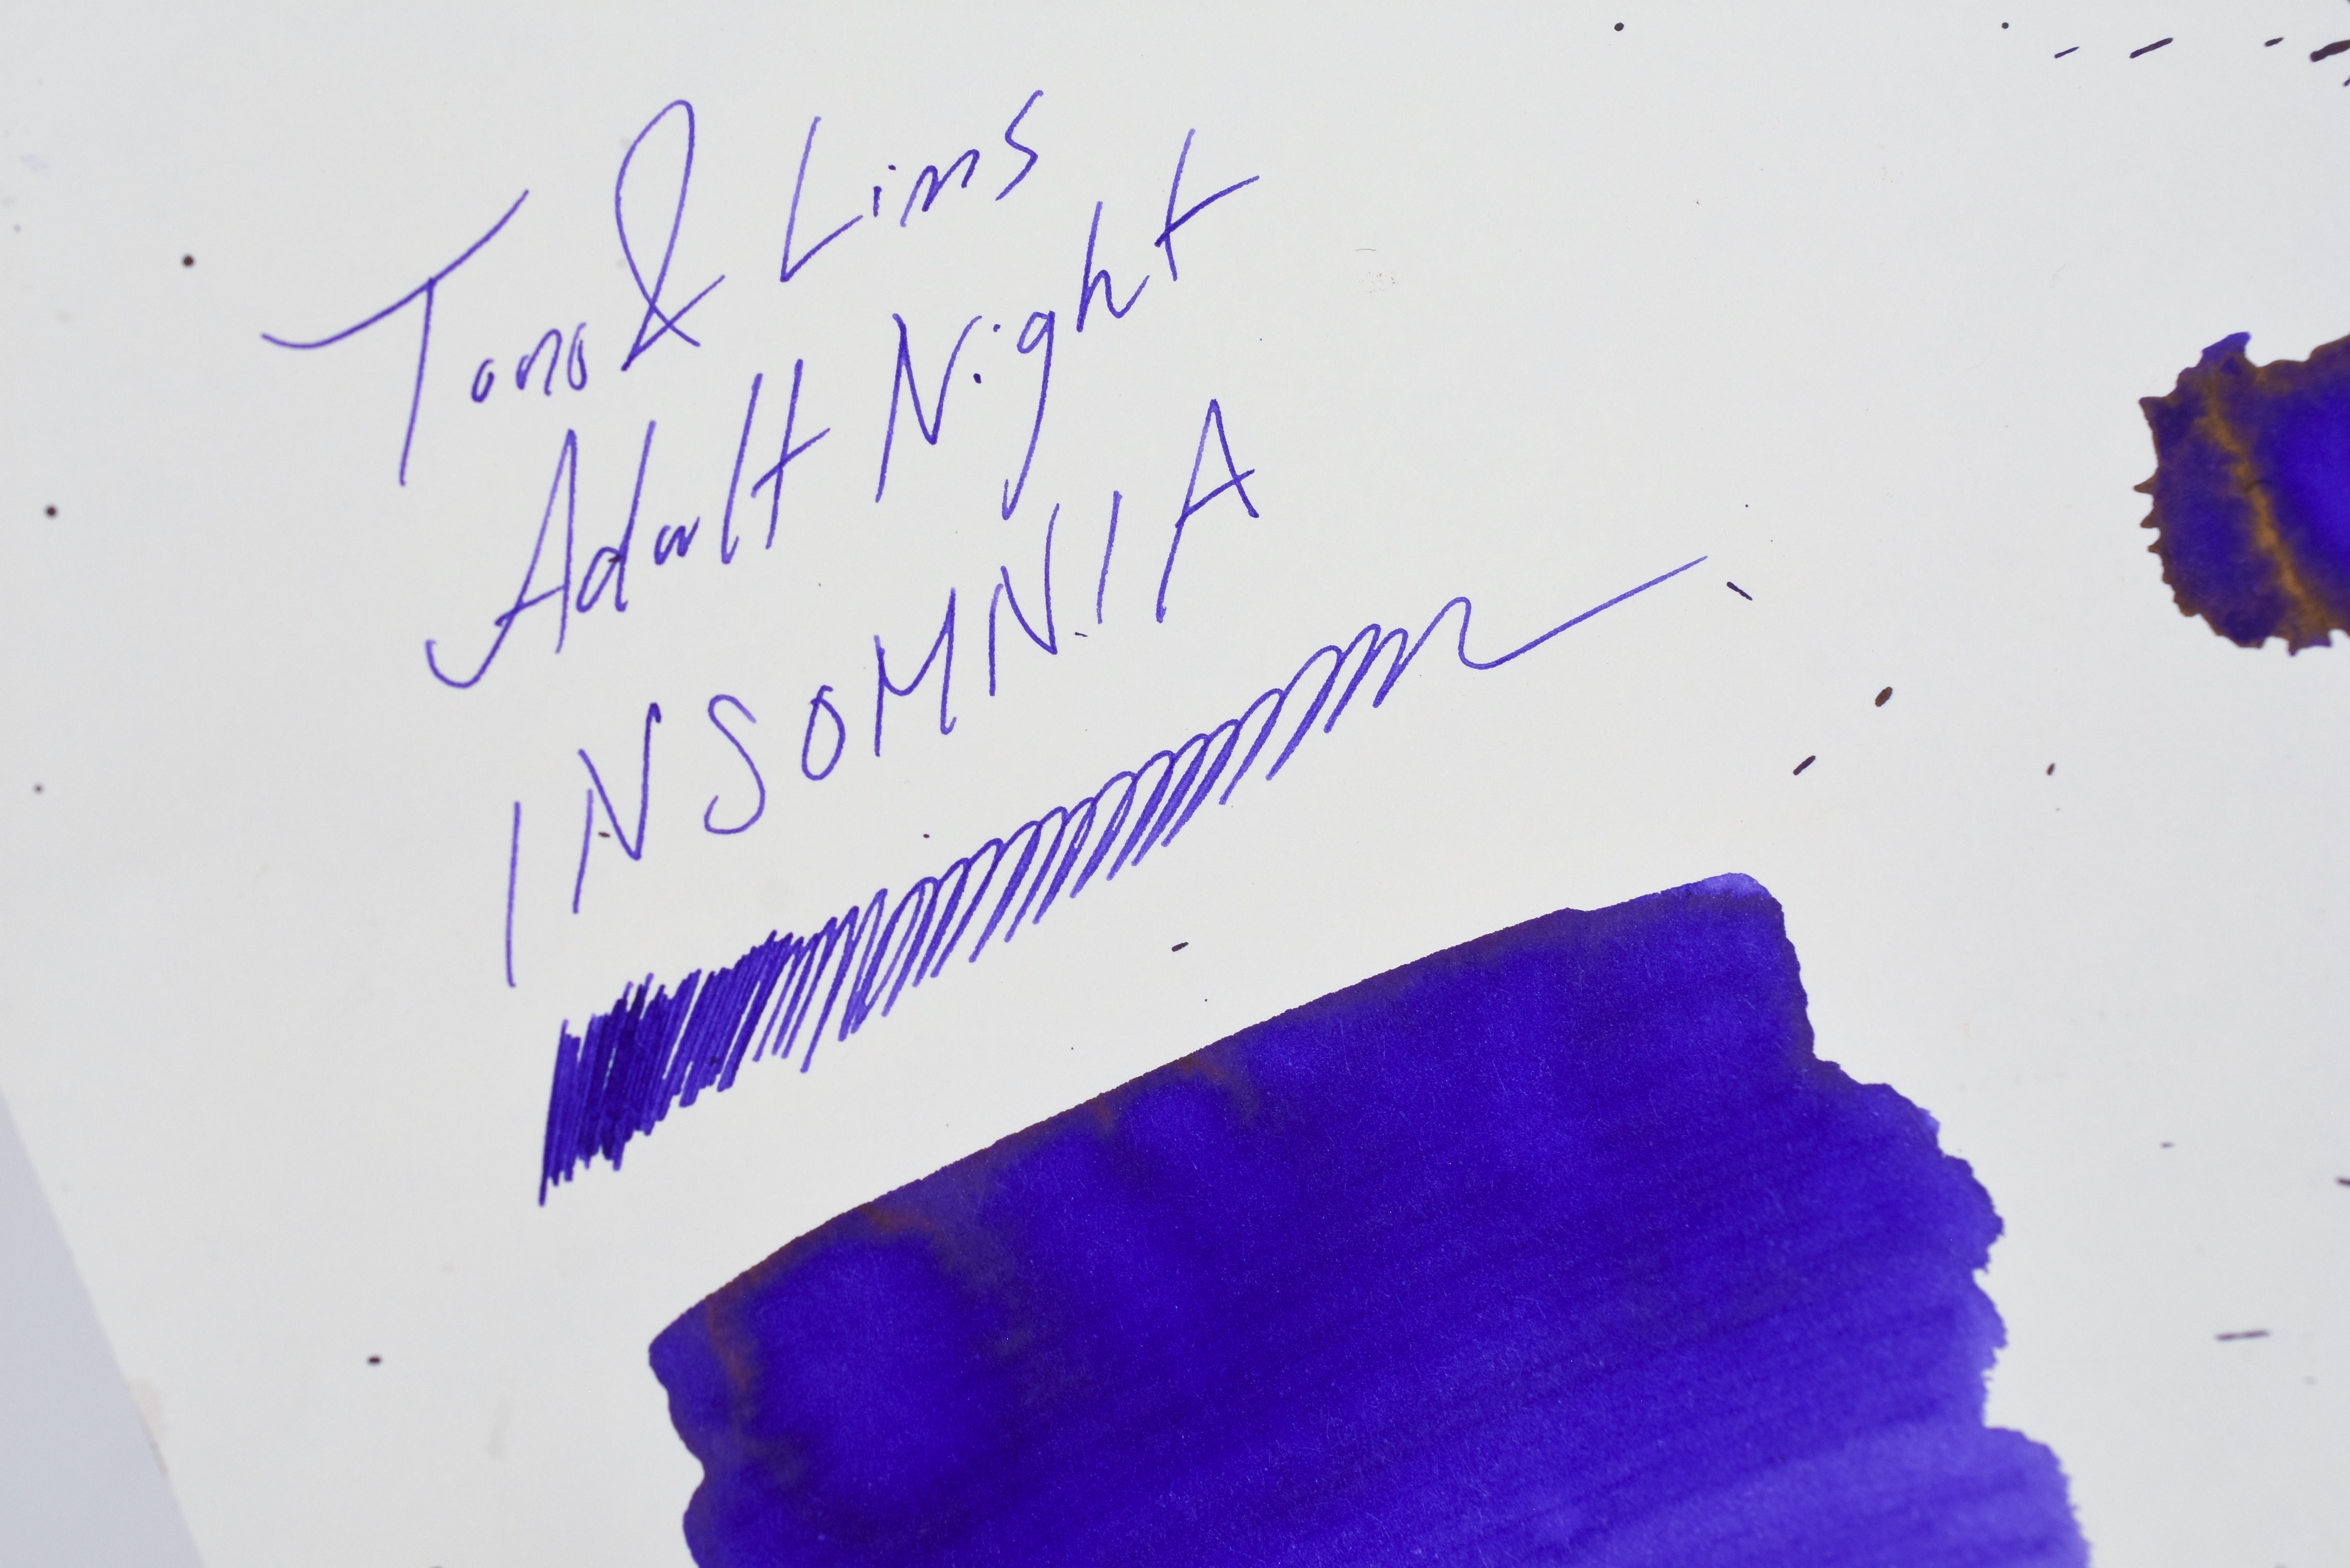 Tono & Lims
Adult Night
INSOMNIA